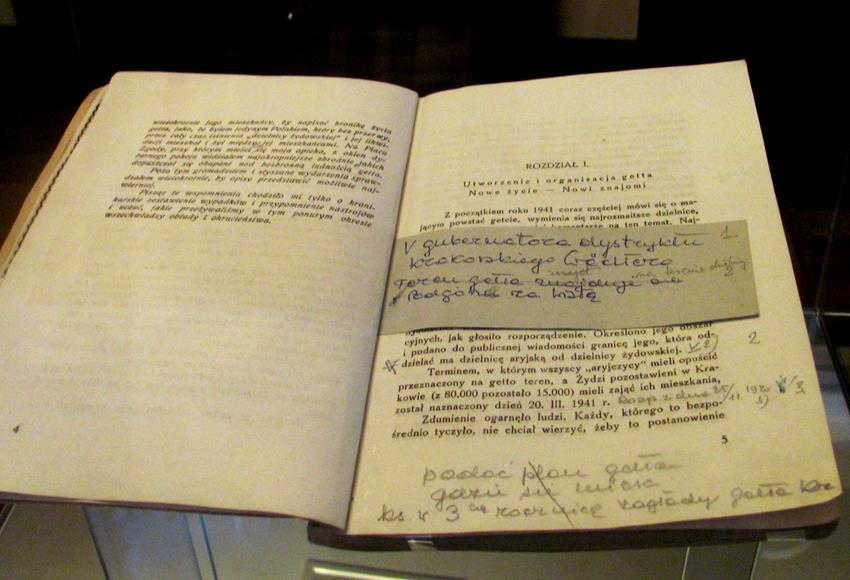 wielokrotnie jego mieszkańcy, by napisać kronikę życia
getta, jako, że byłem jedynym Polakiem, który bez przerwy,
przez cały czas istnienia „dzielnicy żydowskiej" i jej likwi-
dacji mieszkał i żył między jej mieszkańcami. Na Placu
Zgody, przy którym mieści się moja apteka, z okien dy-
żurnego pokoju widziałem najokropniejsze zbrodnie, jakich
dopuszczał się okupant nad bezbronną ludnością getta.
Poza tym gromadziłem i słyszane wydarzenia spraw-
dzałem wielokrotnie, by opisy przedstawić możliwie naj-
wierniej.
Pisząc te wspomnienia chodziło mi tylko o kroni-
karskie zestawienie wypadków i przypomnienie nastrojów
i uczuć, jakie przeżywaliśmy w tym ponurym okresie
wszechwładzy obłudy i okrucieństwa.
4
ROZDZIAŁ I.
Utworzenie i organizacja getta
Nowe życie — Nowi znajomi
Z początkiem roku 1941 coraz częściej mówi się o ma-
jącym powstać getcie, wymienia się najrozmaitsze dzielnice,
komentarze na ten temat. Naj-
V gubernatora dystryktu 1.
krakowskiego Wächtera
Teren getta znajduje się
Podgórze za Wisłą
cyjnych, jak głosiło rozporządzenie. Określono jego obszar
i podano do publicznej wiadomości granicę jego, która od- 2
dzielać ma dzielnicę aryjską od dzielnicy żydowskiej.
Terminem, w którym wszyscy „aryjczycy" mieli opuścić
przeznaczony na getto teren, a Żydzi pozostawieni w Kra-
kowie (z 80.000 pozostało 15.000) mieli zająć ich mieszkania,
został naznaczony dzień 20. III. 1941 r. Rozp. z dnia
Zdumienie ogarnęło ludzi. Każdy, którego to bezpo-
średnio tyczyło, nie chciał wierzyć, żeby to postanowienie
5
podać plan getta
gdzie się
3 rocznicę zagłady getta